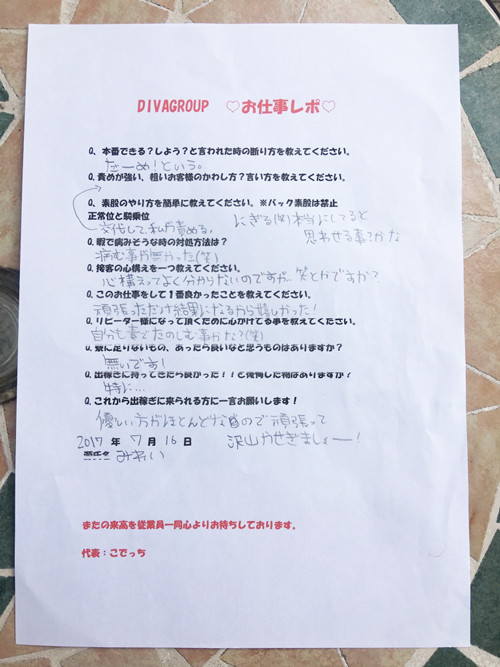 DIVAGROUP ♡お仕事レポ♡
Q、本番できる?しよう?と言われた時の断り方を教えてください。
だーめ!という。
Q、責めが強い、粗いお客様のかわし方?言い方を教えてください。
Q、素股のやり方を簡単に教えてください。※バック素股は禁止
正常位と騎乗位
にぎる(笑)本当にしてると
思わせる事?かな
交代して私が責める。
Q、暇で病みそうな時の対処方法は?
病む事が無かった(笑)
Q、接客の心構えを一つ教えてください。
心構えってよく分からないのですが、笑とかですか?
Q、このお仕事をして1番良かったことを教えてください。
頑張っただけ結果になるから嬉しかった!
Q、リピーター様になって頂くために心がけてる事を教えてください。
自分も素でたのしむ事かな?(笑)
Q、寮に足りないもの、あったら良いなと思うものはありますか?
無いです!
Q、出稼ぎに持ってきたら良かった!!と後悔した物はありますか?
特に…
Q、これから出稼ぎに来られる方に一言お願いします!
優しい方がほとんどなので頑張って
沢山かせぎましょー!
2017 年 7 月 16 日
みれい
またの来高を従業員一同心よりお待ちしております。
代表:こでっち